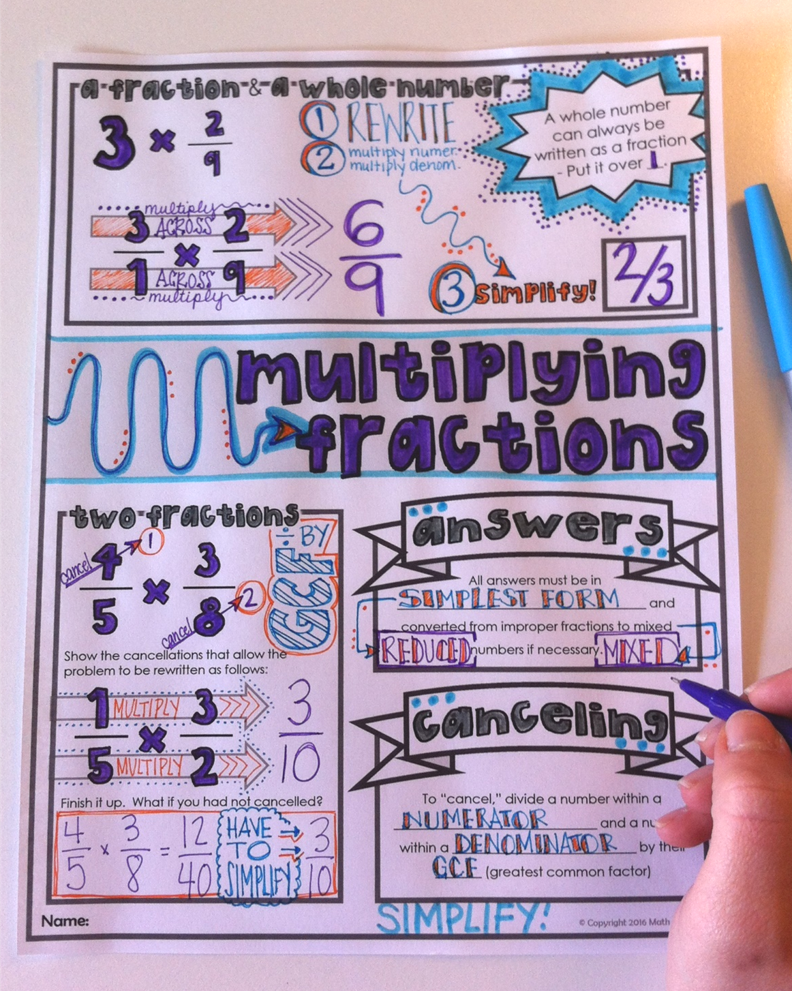 a fraction & a whole number
3 × 2/9
① REWRITE
② multiply numer.
multiply denom.
A whole number
can always be
written as a fraction
- Put it over 1.
multiply
3 ACROSS 2
×
1 ACROSS 9
multiply
6/9
③ simplify!
2/3
multiplying
fractions
two fractions
cancel 4 1 × 3
5 cancel 8 2
÷ BY
GCF
Show the cancellations that allow the
problem to be rewritten as follows:
1 MULTIPLY 3
×
5 MULTIPLY 2
3/10
Finish it up. What if you had not cancelled?
4/5 × 3/8 = 12/40
HAVE
TO
SIMPLIFY
3/10
Name:
answers
All answers must be in
SIMPLEST FORM and
converted from improper fractions to mixed
REDUCED numbers if necessary. MIXED
canceling
To "cancel," divide a number within a
NUMERATOR and a nu
within a DENOMINATOR by their
GCF (greatest common factor)
SIMPLIFY!
© Copyright 2016 Math